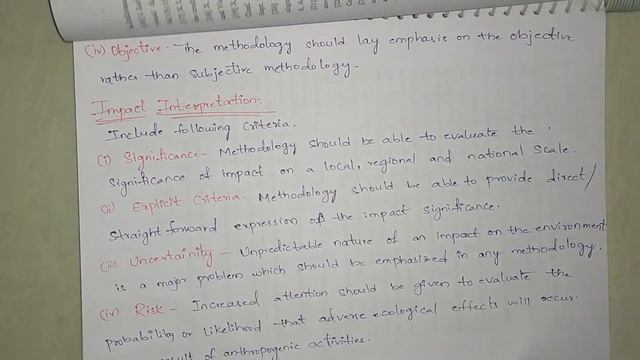 (iv) Objective - The methodology should lay emphasis on the objective
rather than subjective methodology.
Impact Interpretation:
Include following Criteria.
(i) Significance - Methodology should be able to evaluate the
Significance of impact on a local, regional and national scale.
(ii) Explicit Criteria - Methodology should be able to provide direct/
Straight forward expression of the impact significance.
(iii) Uncertainity - Unpredictable nature of an impact on the environment
is a major problem which should be emphasized in any methodology.
(iv) Risk - Increased attention should be given to evaluate the
probability or likelihood that adverse ecological effects will occur
result of anthropogenic activities.